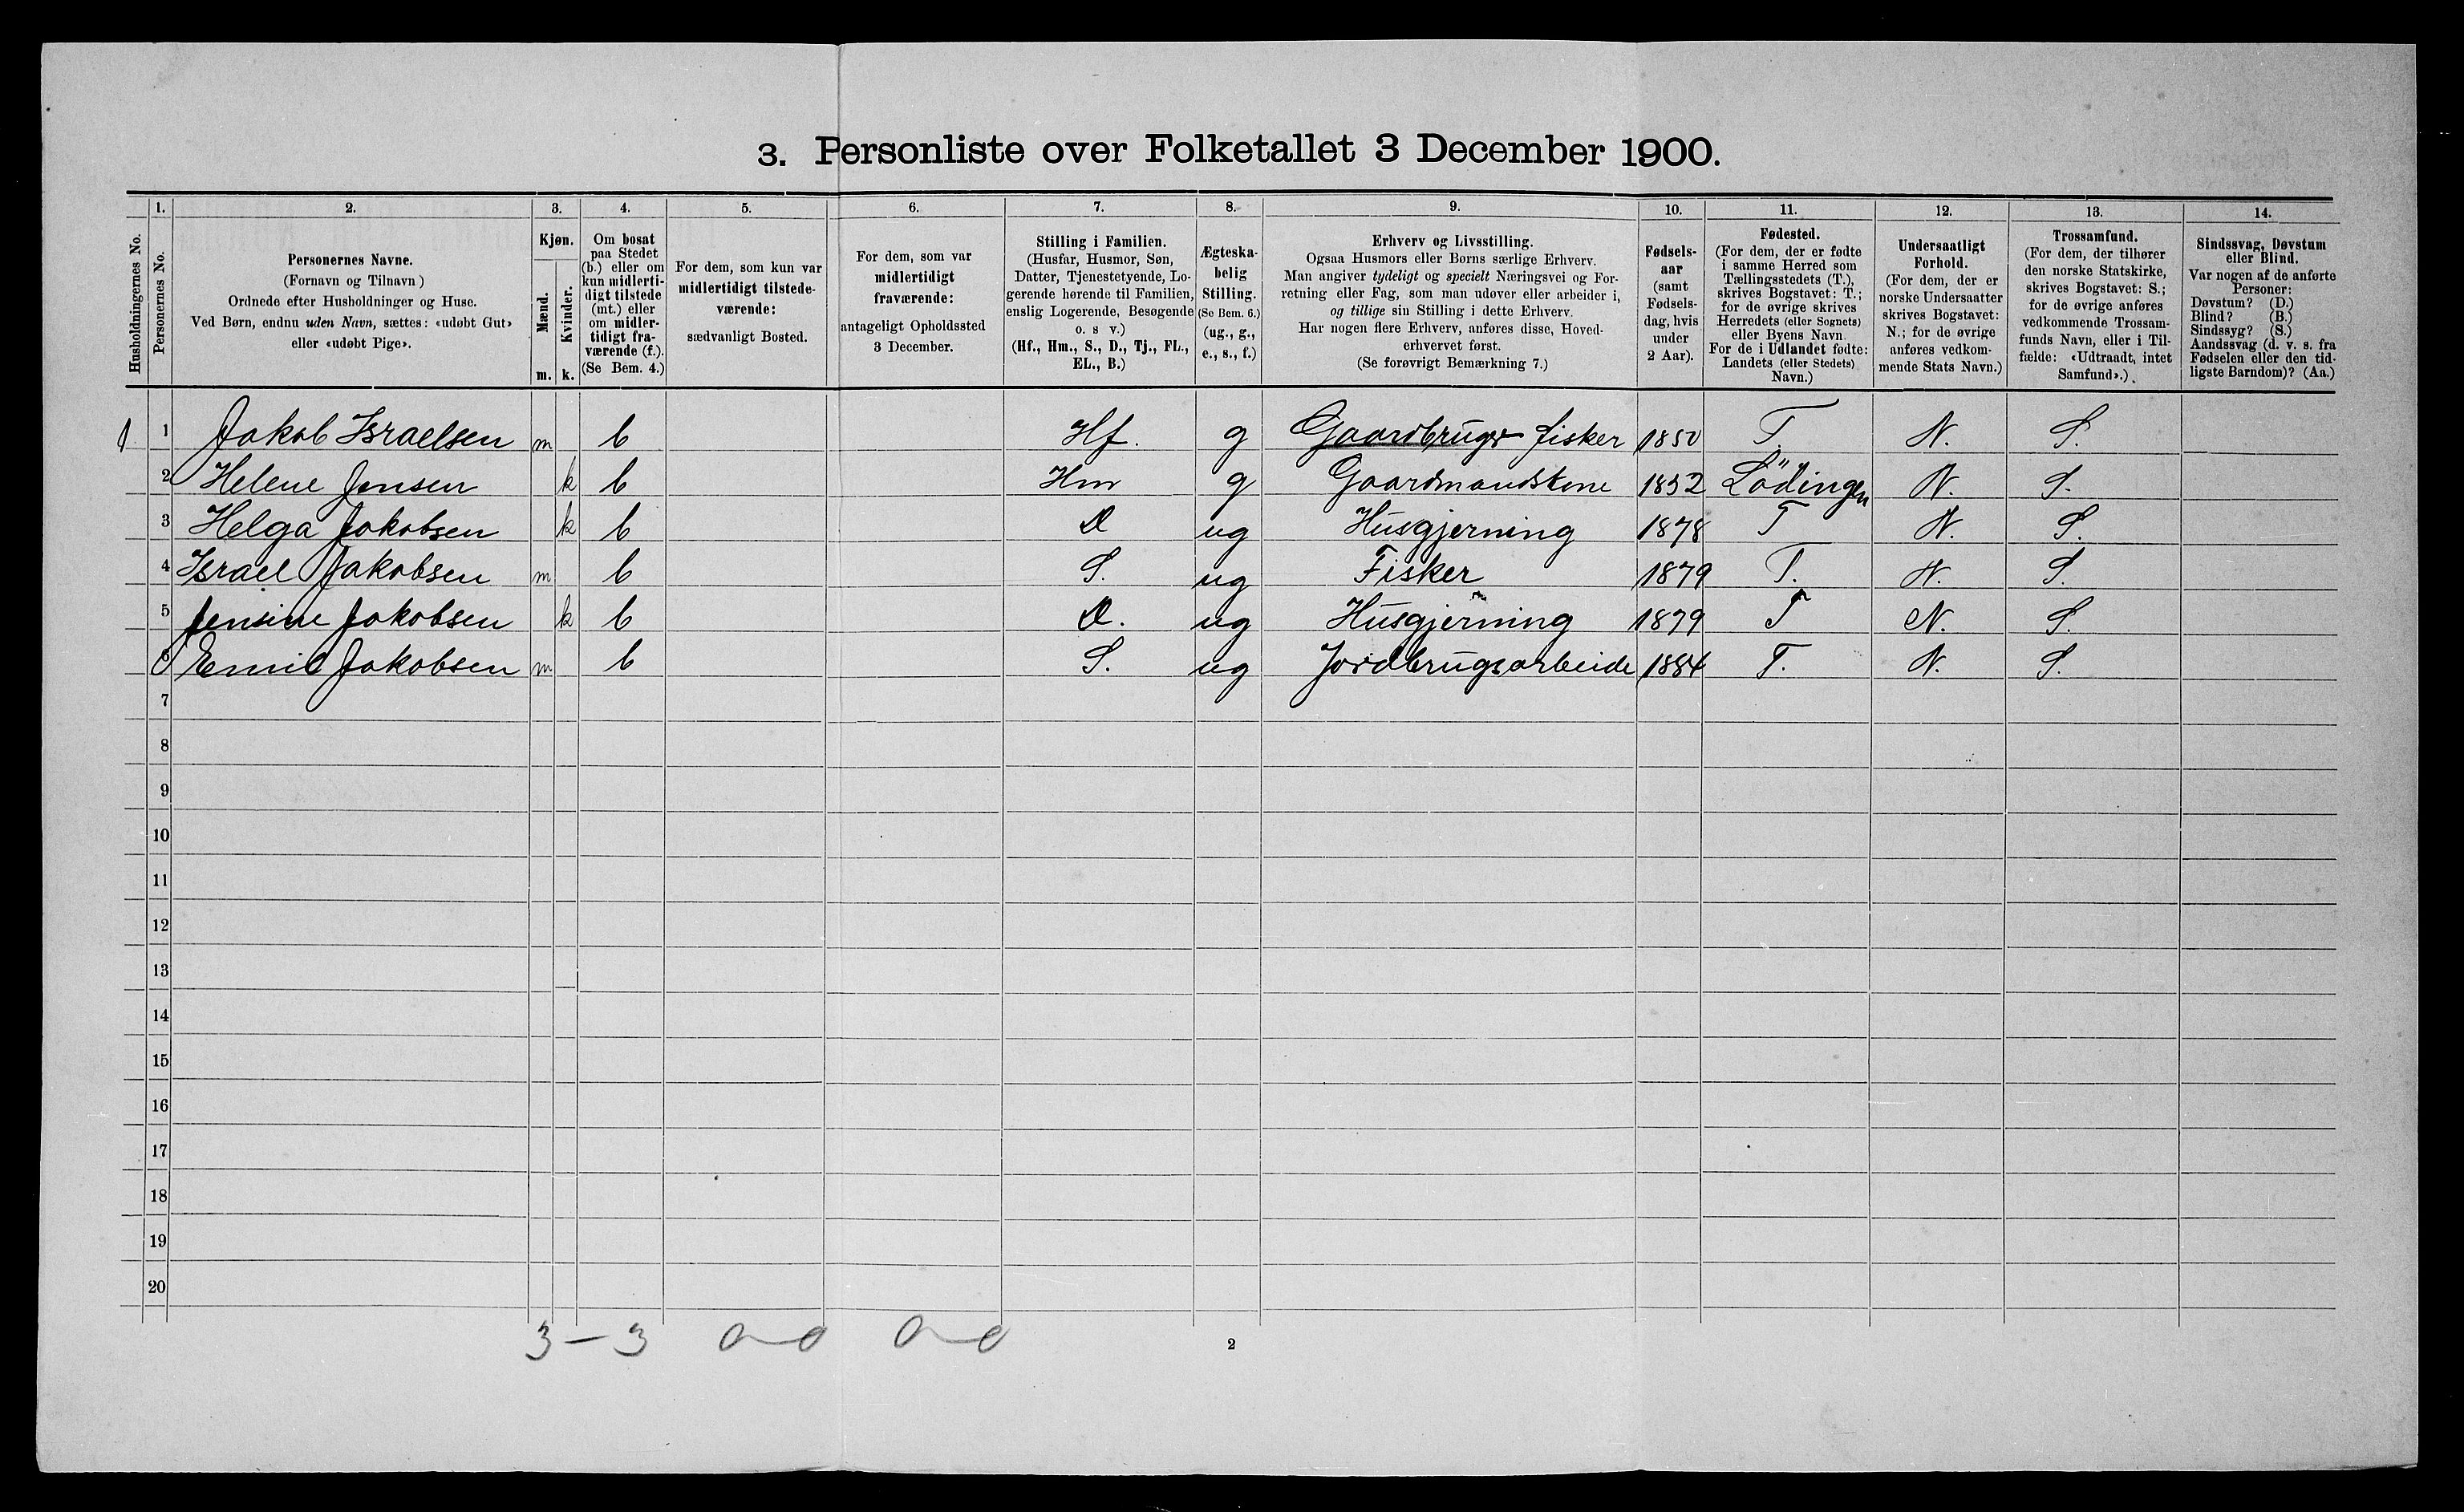 3. Personliste over Folketallet 3 December 1900.
1. 2. 3. 4. 5. 6. 7. 8. 9. 10. 11. 12. 13. 14.
Husholdningernes No.
Personernes No.
Personernes Navne.
(Fornavn og Tilnavn)
Ordnede efter Husholdninger og Huse.
Ved Børn, endnu uden Navn, sættes: «udøbt Gut»
eller «udøbt Pige».
Kjøn.
Mænd.
Kvinder.
m. k.
Om bosat
paa Stedet
(b.) eller om
kun midlerti-
digt tilstede
(mt.) eller
om midler-
tidigt fra-
værende (f.).
(Se Bem. 4.)
For dem, som kun var
midlertidigt tilstede-
værende:
sædvanligt Bosted.
For dem, som var
midlertidigt
fraværende:
antageligt Opholdssted
3 December.
Stilling i Familien.
(Husfar, Husmor, Søn,
Datter, Tjenestetyende, Lo-
gerende hørende til Familien,
enslig Logerende, Besøgende
o. s v.)
(Hf., Hm., S., D., Tj., FL.,
EL., B.)
Ægteska-
belig
Stilling.
(Se Bem. 6.)
(ug., g.,
e., s., f.)
Erhverv og Livsstilling.
Ogsaa Husmors eller Børns særlige Erhverv.
Man angiver tydeligt og specielt Næringsvei og For-
retning eller Fag, som man udøver eller arbeider i,
og tillige sin Stilling i dette Erhverv.
Har nogen flere Erhverv, anføres disse, Hoved-
erhvervet først.
(Se forøvrigt Bemærkning 7.)
Fødsels-
aar
(samt
Fødsels-
dag, hvis
under
2 Aar).
Fødested.
(For dem, der er fødte
i samme Herred som
Tællingsstedets (T.),
skrives Bogstavet: T.;
for de øvrige skrives
Herredets (eller Sognets)
eller Byens Navn.
For de i Udlandet fødte:
Landets (eller Stedets)
Navn.)
Undersaatligt
Forhold.
(For dem, der er
norske Undersaatter
skrives Bogstavet:
N.; for de øvrige
anføres vedkom-
mende Stats Navn.)
Trossamfund.
(For dem, der tilhører
den norske Statskirke,
skrives Bogstavet: S.;
for de øvrige anføres
vedkommende Trossam-
funds Navn, eller i Til-
fælde: «Udtraadt, intet
Samfund».)
Sindssvag, Døvstum
eller Blind.
Var nogen af de anførte
Personer:
Døvstum? (D.)
Blind? (B.)
Sindssyg? (S.)
Aandssvag (d. v. s. fra
Fødselen eller den tid-
ligste Barndom)? (Aa.)
1 1 Jakob Israelsen m b Hf. g Gaardbruger fisker 1850 T. N. S.
2 Helene Jensen k b Hm g Gaardmandskone 1852 Lödingen N. S.
3 Helga Jakobsen k b D ug Husgjerning 1878 T N. S.
4 Israel Jakobsen m b S. ug Fisker 1879 T. N. S.
5 Jensine Jakobsen k b D. ug Husgjerning 1879 T N. S.
6 Emil Jakobsen m b S. ug Jordbrugsarbeide 1884 T. N. S.
7
8
9
10
11
12
13
14
15
16
17
18
19
20
3 — 3 0—0 0—0
2